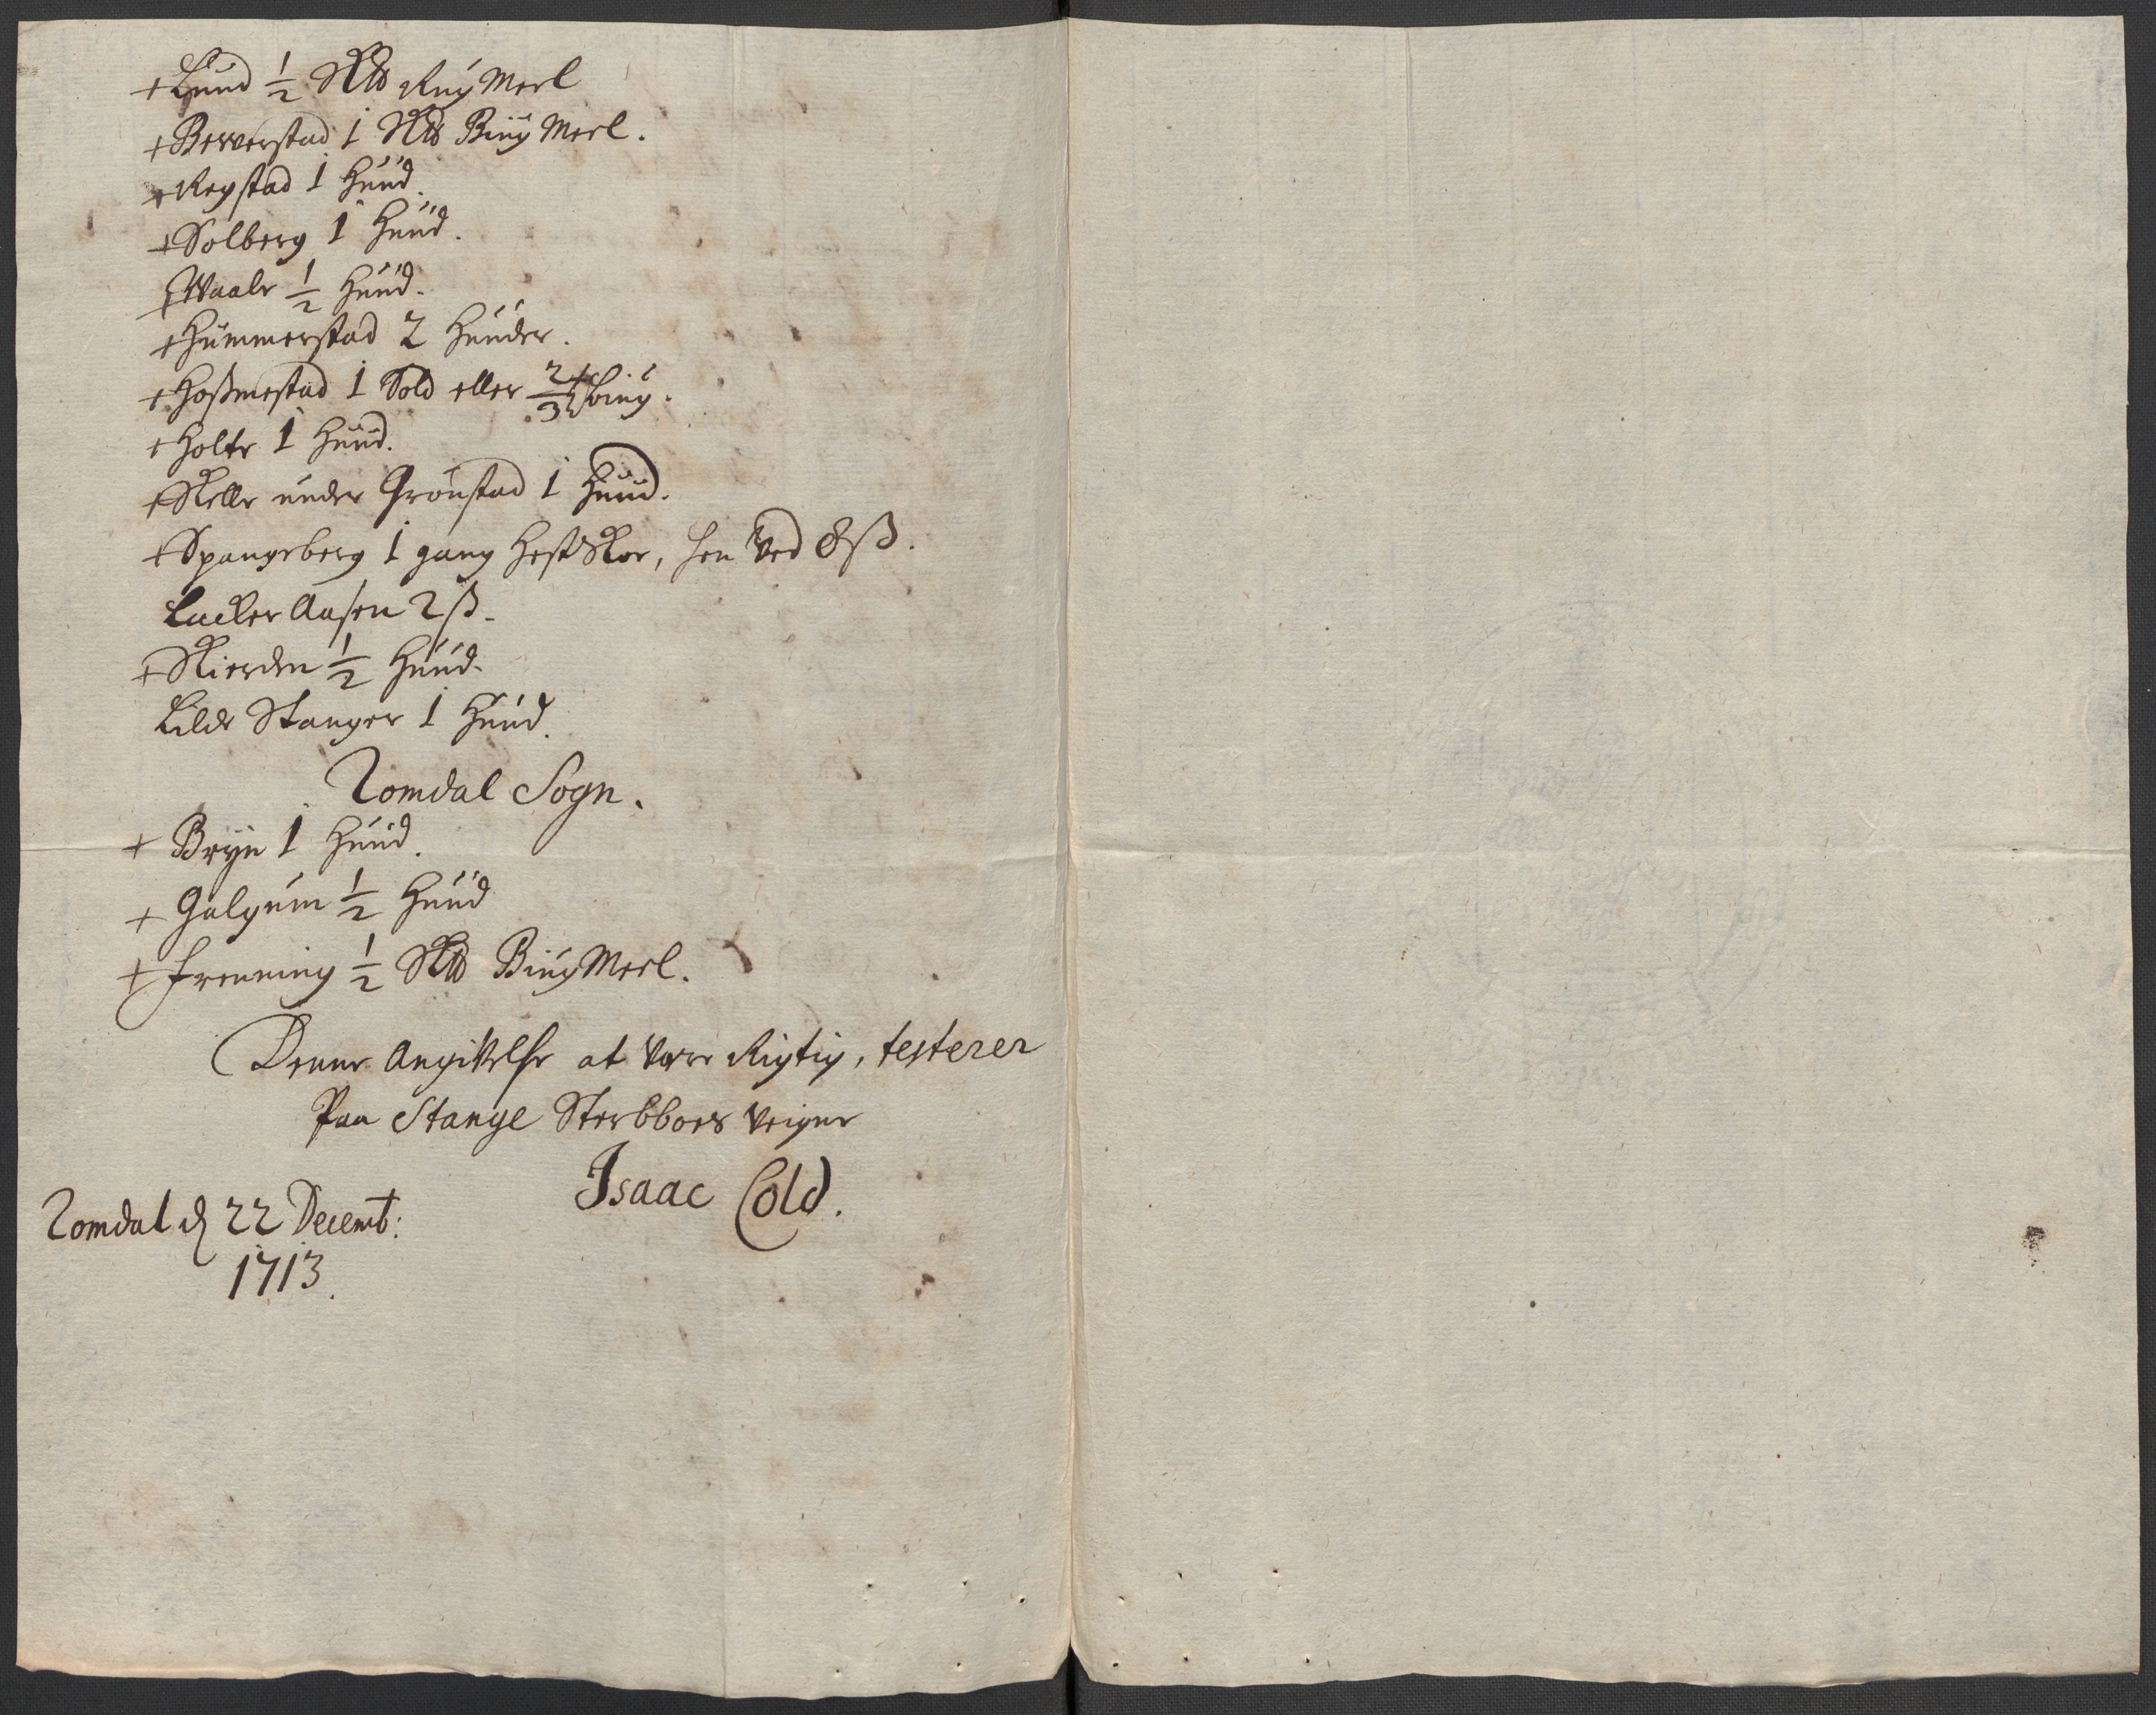 + Lund ½ Sk℔ Rug Meel
+ Beverstad 1 Sk℔ Biug Meel.
+ Regstad 1 Huud.
+ Solberg 1 Huud.
+ Waale ½ Huud.
+ Hummerstad 2 Huuder.
+ Hoßmestad 1 Sold eller 2/3 biug.
+ Holte 1 Huud.
+ Kelle under Grønstad 1 Huud.
+ Spangeberg 1 gang Hest Skoe, hen ved 8 ß.
Lacker Aasen 2 ß.
+ Skierden ½ Huud.
Lilde Stanger 1 Huud.
Romdal Sogn.
+ Bryn 1 Huud.
+ Galgum ½ Huud
+ Frenning ½ Sk℔ Biug Meel.
Denne Angivelse at være Rigtig, testerer
Paa Stange Sterbboes veigne
Isaac Cold.
Romdal d 22 Decemb:
1713.